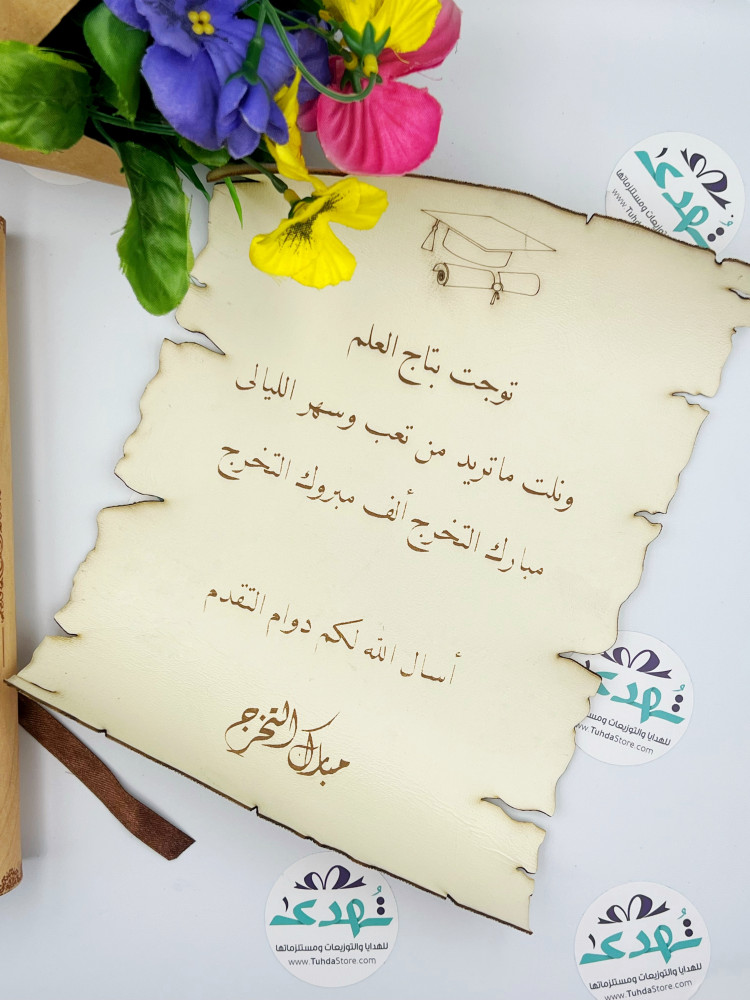 توجت بتاج العلم
ونلت ماتريد من تعب وسهر الليالى
مبارك التخرج ألف مبروك التخرج
أسال الله لكم دوام التقدم
مبارك التخرج
تهدى
للهدايا والتوزيعات ومستلزماتها
www.TuhdaStore.com
تهدى
للهدايا والتوزيعات ومس
TuhdaStore.com
تهدى
للهدايا والتوزيعات ومستلزماتها
www.TuhdaStore.com
تهدى
للهدايا والتوزيعات ومستلزماتها
www.TuhdaStore.com